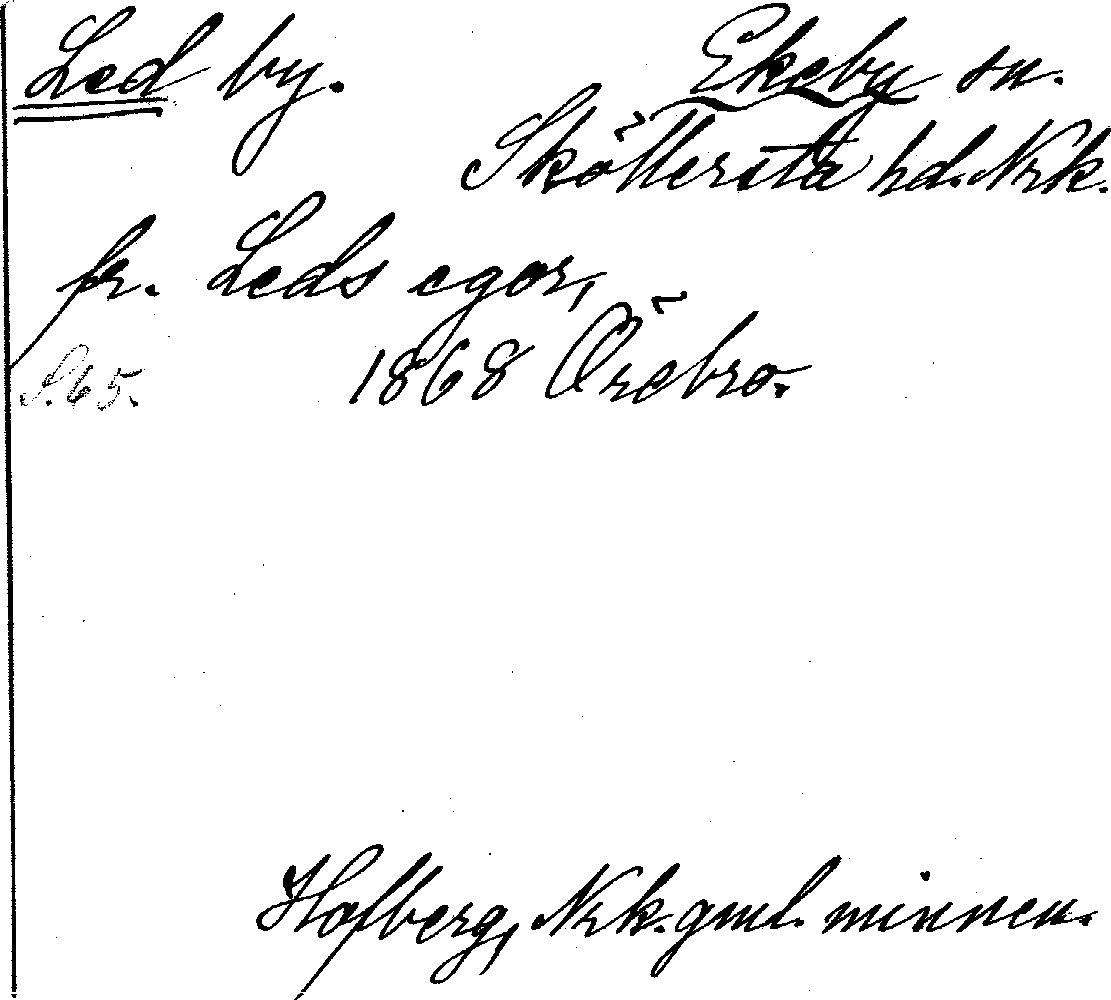 Led by. Ekeby sn.
Sköllersta hd. Nrk.
fr. Leds egor,
S. 65. 1868 Örebro.
Hofberg, Nrk. gml. minnen.